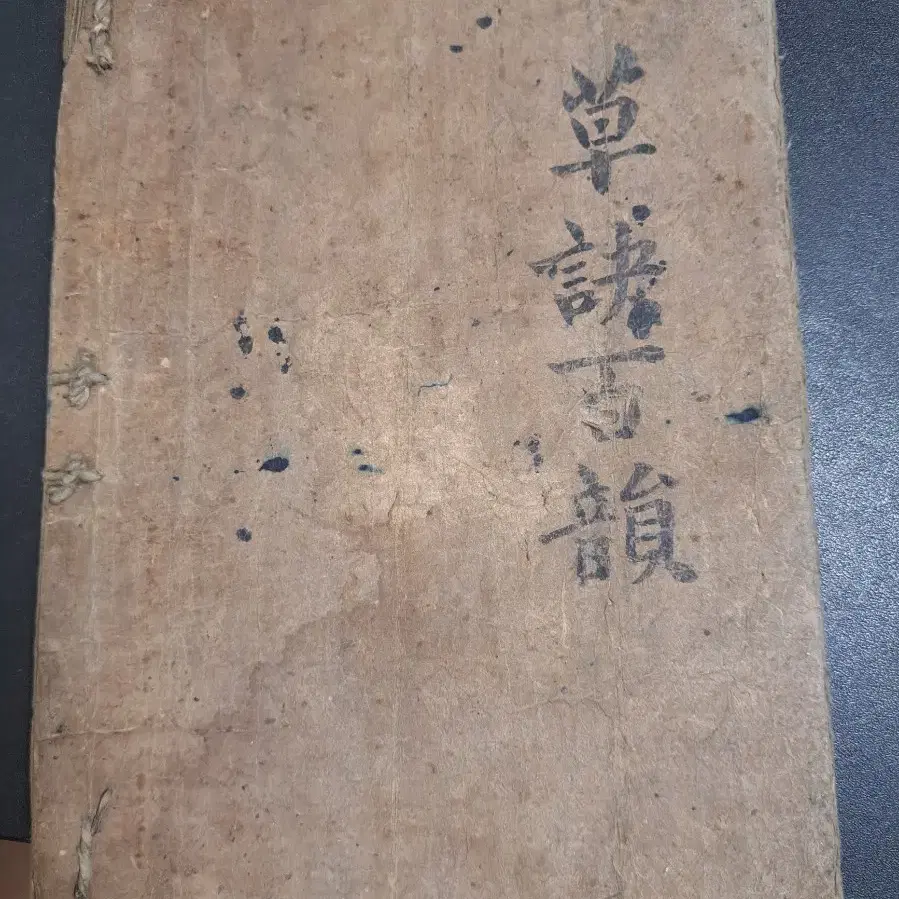 草訣百韻